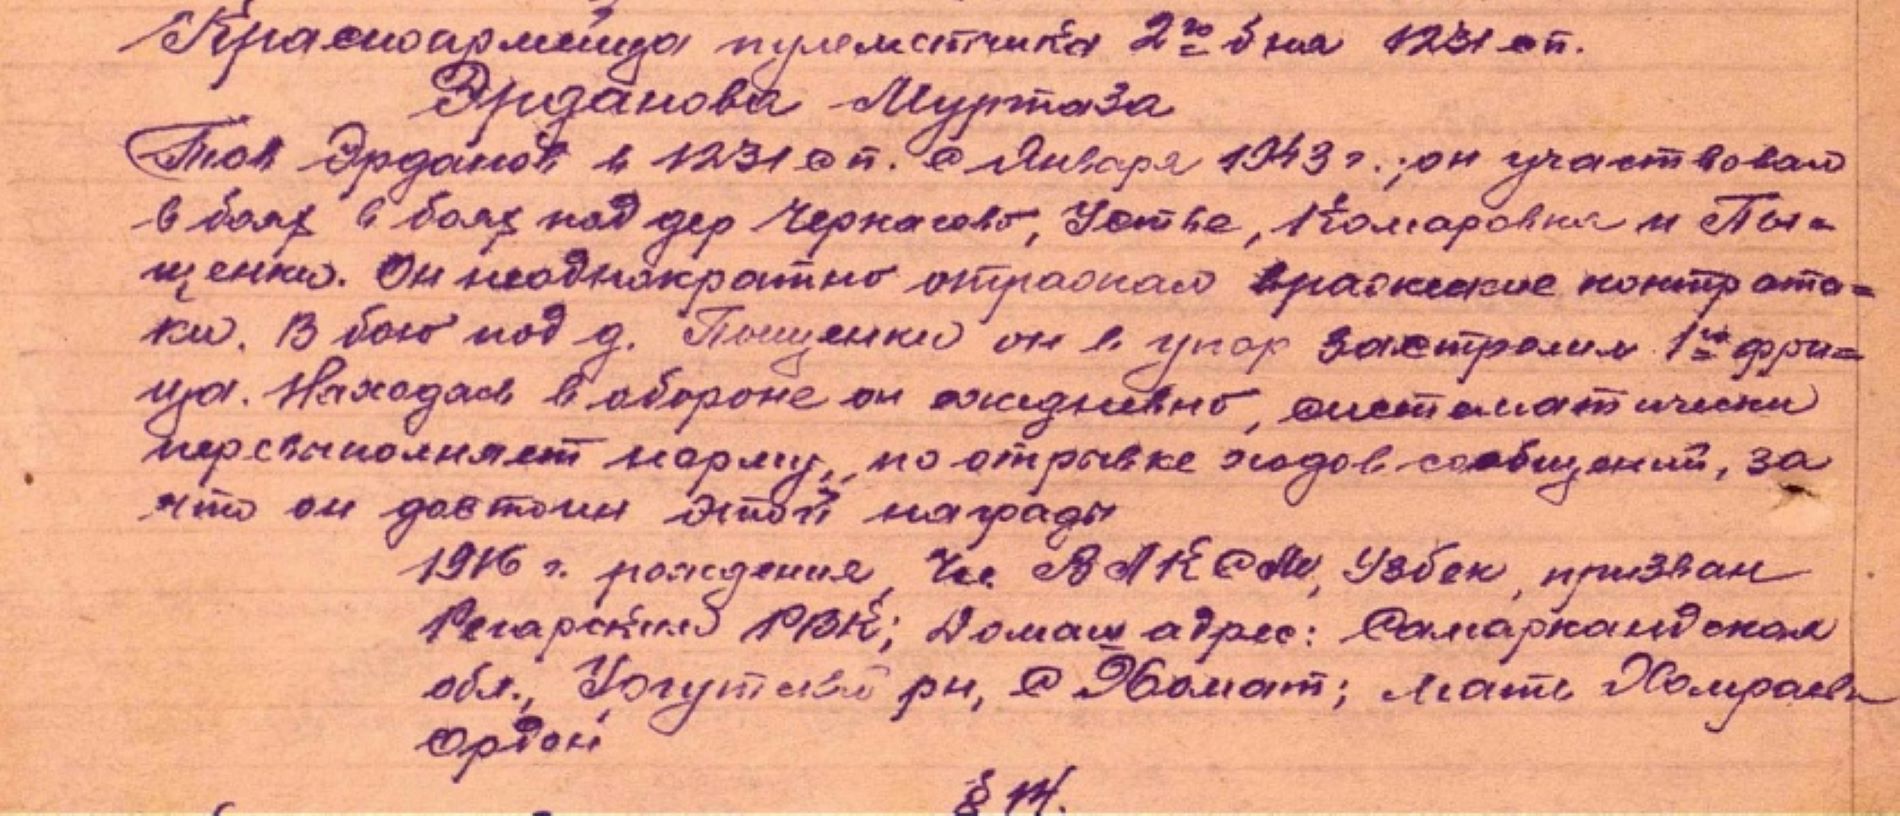 Красноармейца пулеметчика 2го б на 1231 сп.
Эрданова Муртаза
Тов Эрданов в 1231 сп. с Января 1943 г., он участвовал
в боях в боях под дер Черкасово, Устье, Комаровка и Пы=
щенки. Он неоднократно отражал вражеские контрата=
ки. В бою под д. Пыщенки он в упор застрелил 1го фри=
ца. Находясь в обороне он ежедневно, систематически
перевыполняет норму, по отрывке ходов сообщений, за
что он достоин этой награды
1916 г. рождения, Чл. ВЛКСМ, Узбек, призван
Регарским РВК; Домаш адрес: Самаркандская
обл., Ургутский рн, С Жомат; мать Хомраева
Ордон
§ 14.